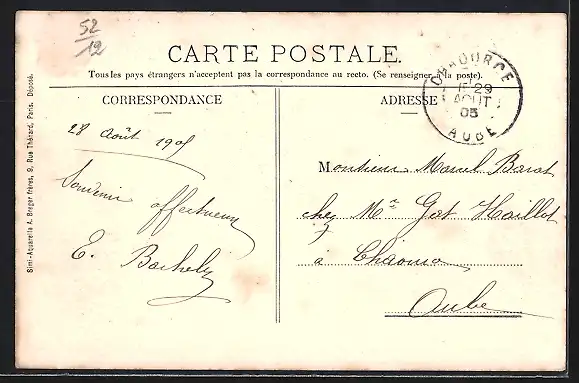 52
12
CARTE POSTALE.
Tous les pays étrangers n'acceptent pas la correspondance au recto. (Se renseigner à la poste).
CORRESPONDANCE
ADRESSE
CHAOURCE
29
AOUT
05
AUBE
28 Août 1905
Souvenir
affectueux
E.
Monsieur Marcel Barat
chez Mr
à
Aube
Simi-Aquarelle A. Breger frères, 9, Rue Thénard, Paris. Déposé.